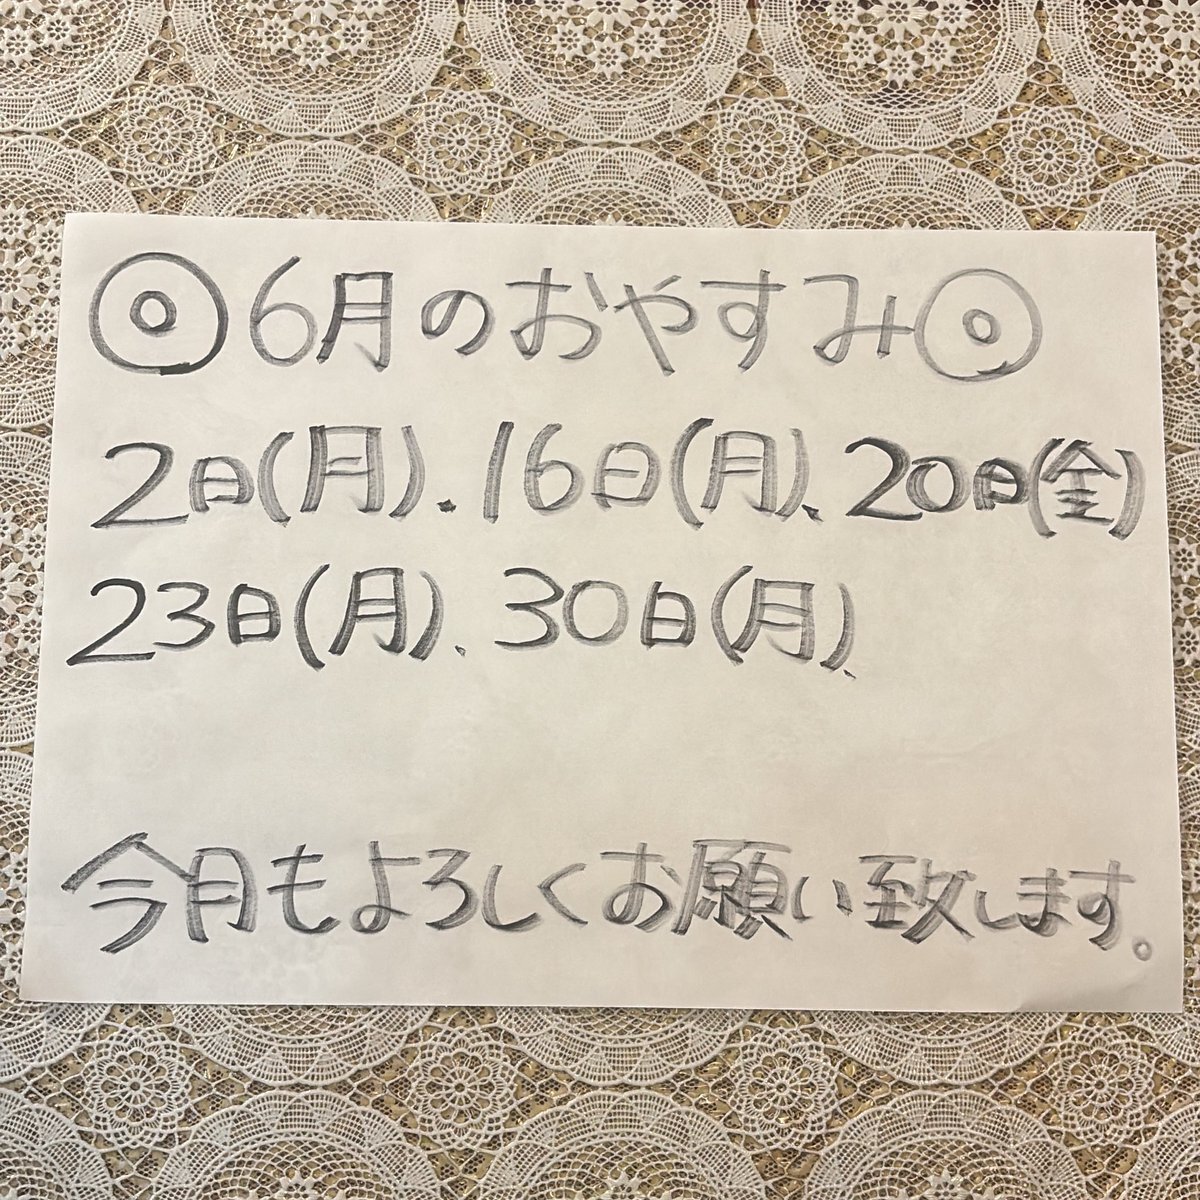 ◎6月のおやすみ◎
2日(月)、16日(月)、20日(金)
23日(月)、30日(月)、
今月もよろしくお願い致します。